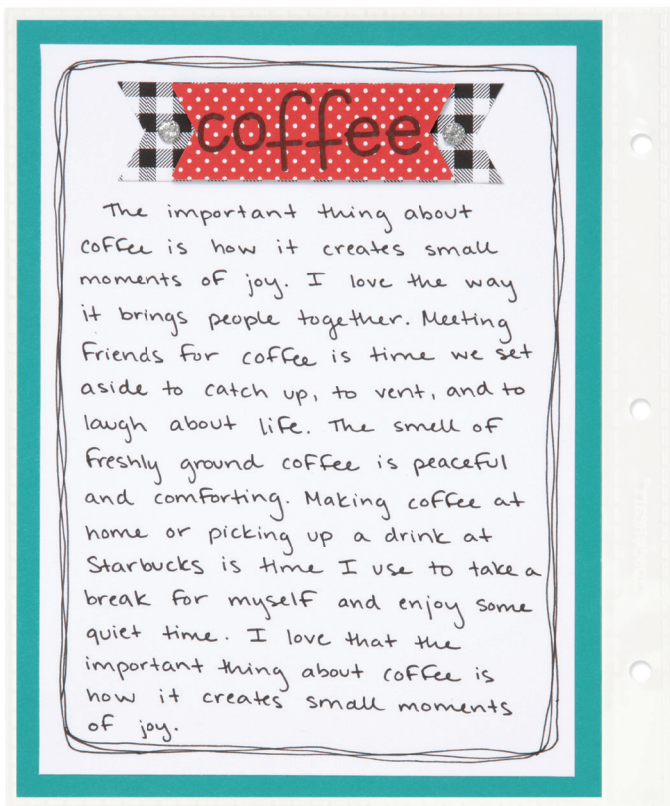 coffee
The important thing about
coffee is how it creates small
moments of joy. I love the way
it brings people together. Meeting
friends for coffee is time we set
aside to catch up, to vent, and to
laugh about life. The smell of
freshly ground coffee is peaceful
and comforting. Making coffee at
home or picking up a drink at
Starbucks is time I use to take a
break for myself and enjoy some
quiet time. I love that the
important thing about coffee is
how it creates small moments
of joy.